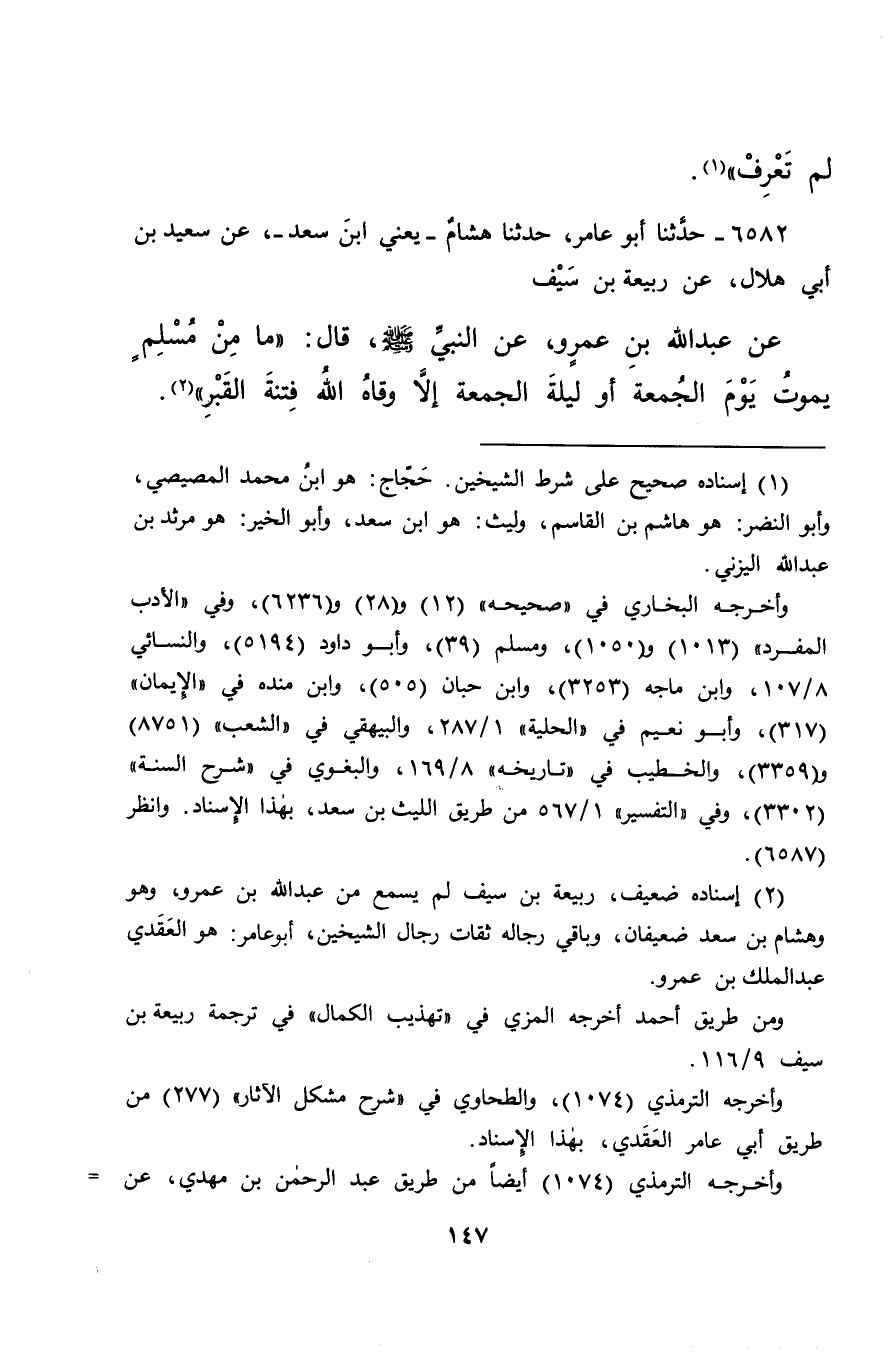 لم تَعْرِفْ»(١).
٦٥٨٢ ـ حدَّثنا أبو عامر، حدثنا هشامٌ ـ يعني ابنَ سعد ـ، عن سعيد بن
أبي هلال، عن ربيعة بن سَيْف
عن عبدالله بنِ عمرٍو، عن النبيِّ ﷺ، قال: «ما مِنْ مُسْلِمٍ
يموتُ يَوْمَ الجُمعة أو ليلةَ الجمعة إلَّا وقاهُ اللهُ فِتنةَ القَبْرِ»(٢).
(١) إسناده صحيح على شرط الشيخين. حَجّاج: هو ابنُ محمد المصيصي،
وأبو النضر: هو هاشم بن القاسم، وليث: هو ابن سعد، وأبو الخير: هو مرثد بن
عبدالله اليزني.
وأخـرجـه البخـاري في «صحيحـه» (١٢) و(٢٨) و(٦٢٣٦)، وفي «الأدب
المفـرد» (١٠١٣) و(١٠٥٠)، ومسلم (٣٩)، وأبـو داود (٥١٩٤)، والنسـائي
١٠٧/٨، وابن ماجه (٣٢٥٣)، وابن حبان (٥٠٥)، وابن منده في «الإيمان»
(٣١٧)، وأبـو نعـيم في «الحلية» ٢٨٧/١، والبيهقي في «الشعب» (٨٧٥١)
و(٣٣٥٩)، والخـطيب في «تـاريخـه» ١٦٩/٨، والبغـوي في «شـرح السنـة»
(٣٣٠٢)، وفي «التفسير» ٥٦٧/١ من طريق الليث بن سعد، بهٰذا الإسناد. وانظر
(٦٥٨٧).
(٢) إسناده ضعيف، ربيعة بن سيف لم يسمع من عبدالله بن عمرو، وهو
وهشام بن سعد ضعيفان، وباقي رجاله ثقات رجال الشيخين، أبوعامر: هو العَقَدي
عبدالملك بن عمرو.
ومن طريق أحمد أخرجه المزي في «تهذيب الكمال» في ترجمة ربيعة بن
سيف ١١٦/٩.
وأخرجه الترمذي (١٠٧٤)، والطحاوي في «شرح مشكل الآثار» (٢٧٧) من
طريق أبي عامر العَقَدي، بهٰذا الإسناد.
وأخـرجـه الترمذي (١٠٧٤) أيضاً من طريق عبد الرحمٰن بن مهدي، عن =
١٤٧